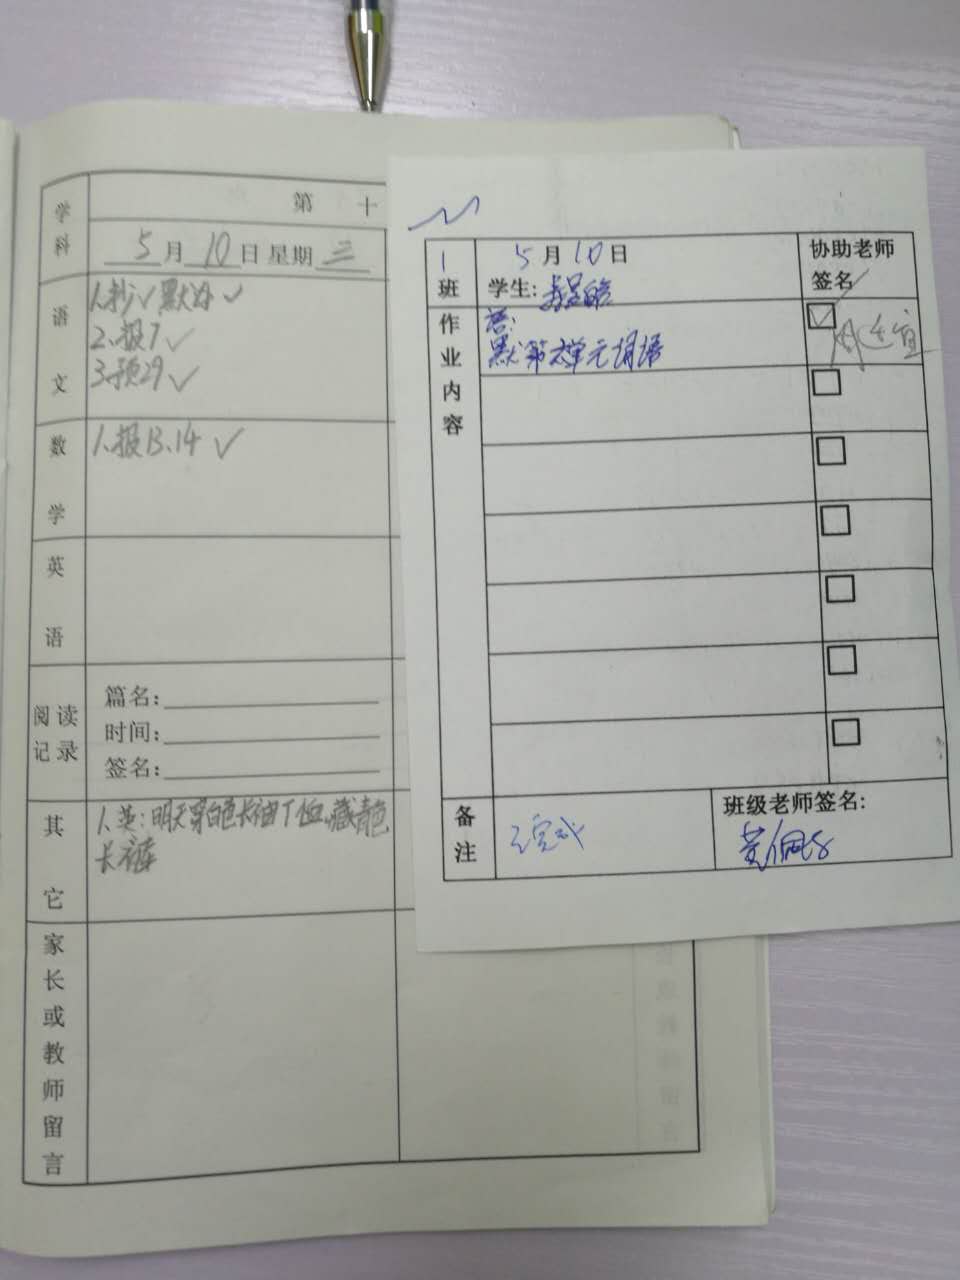 学科
第 十
5月10日星期三
语文
1.抄√默
2.报7√
3.预29√
数学
1.报13、14√
英语
阅读记录
篇名:
时间:
签名:
其它
1.英:明天穿白色长袖T恤、藏青色
长裤
家长或教师留言
1班
5月10日
学生:
协助老师
签名
作业内容
语:
默第六单元词语
备注
已完成
班级老师签名: